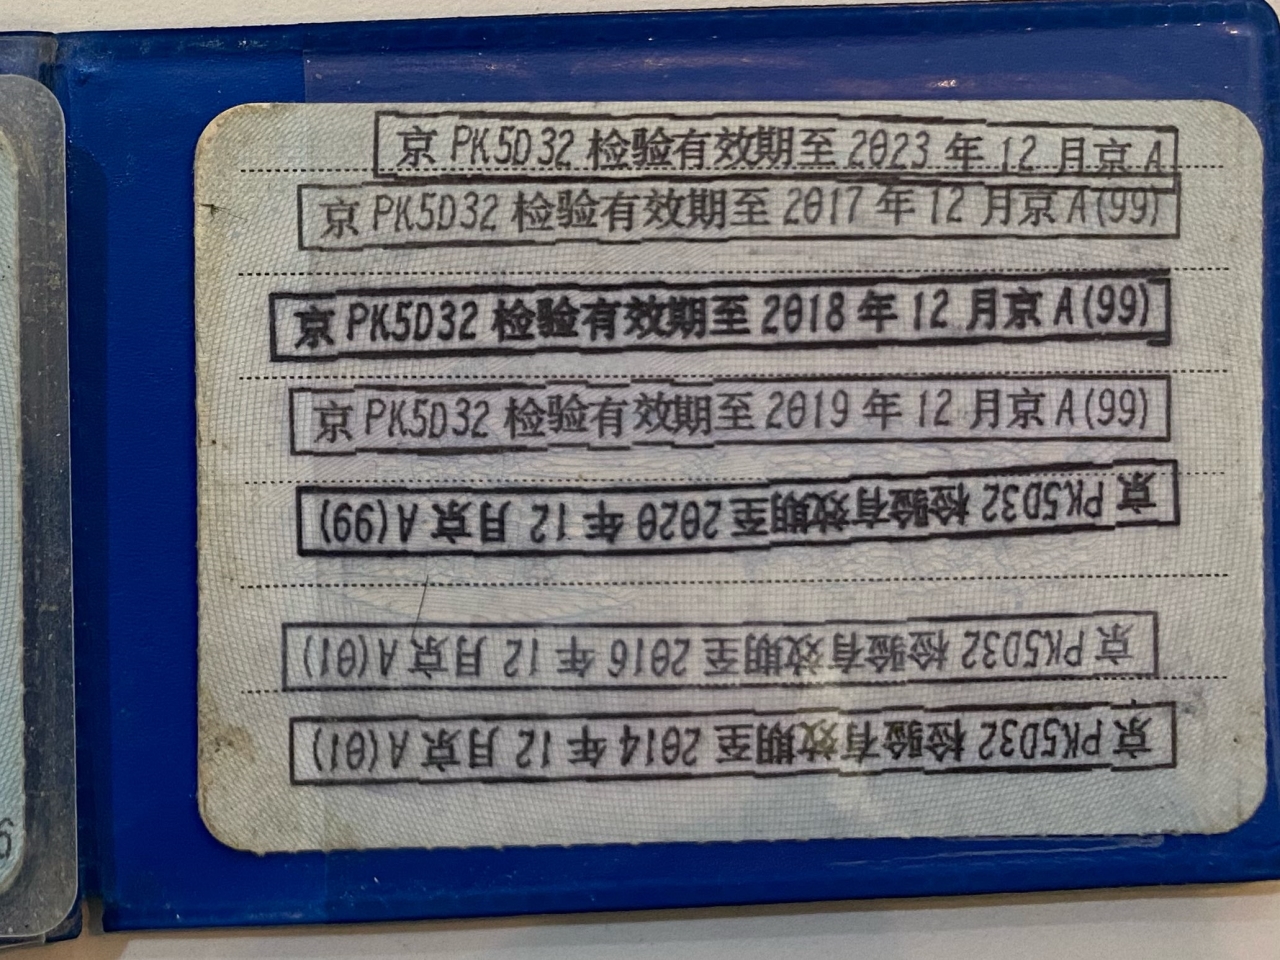 京 PK5D32 检验有效期至 2023 年 12 月京 A
京 PK5D32 检验有效期至 2017 年 12 月京 A(99)
京 PK5D32 检验有效期至 2018 年 12 月京 A(99)
京 PK5D32 检验有效期至 2019 年 12 月京 A(99)
京 PK5D32 检验有效期至 2020 年 12 月京 A(99)
京 PK5D32 检验有效期至 2016 年 12 月京 A(01)
京 PK5D32 检验有效期至 2014 年 12 月京 A(01)